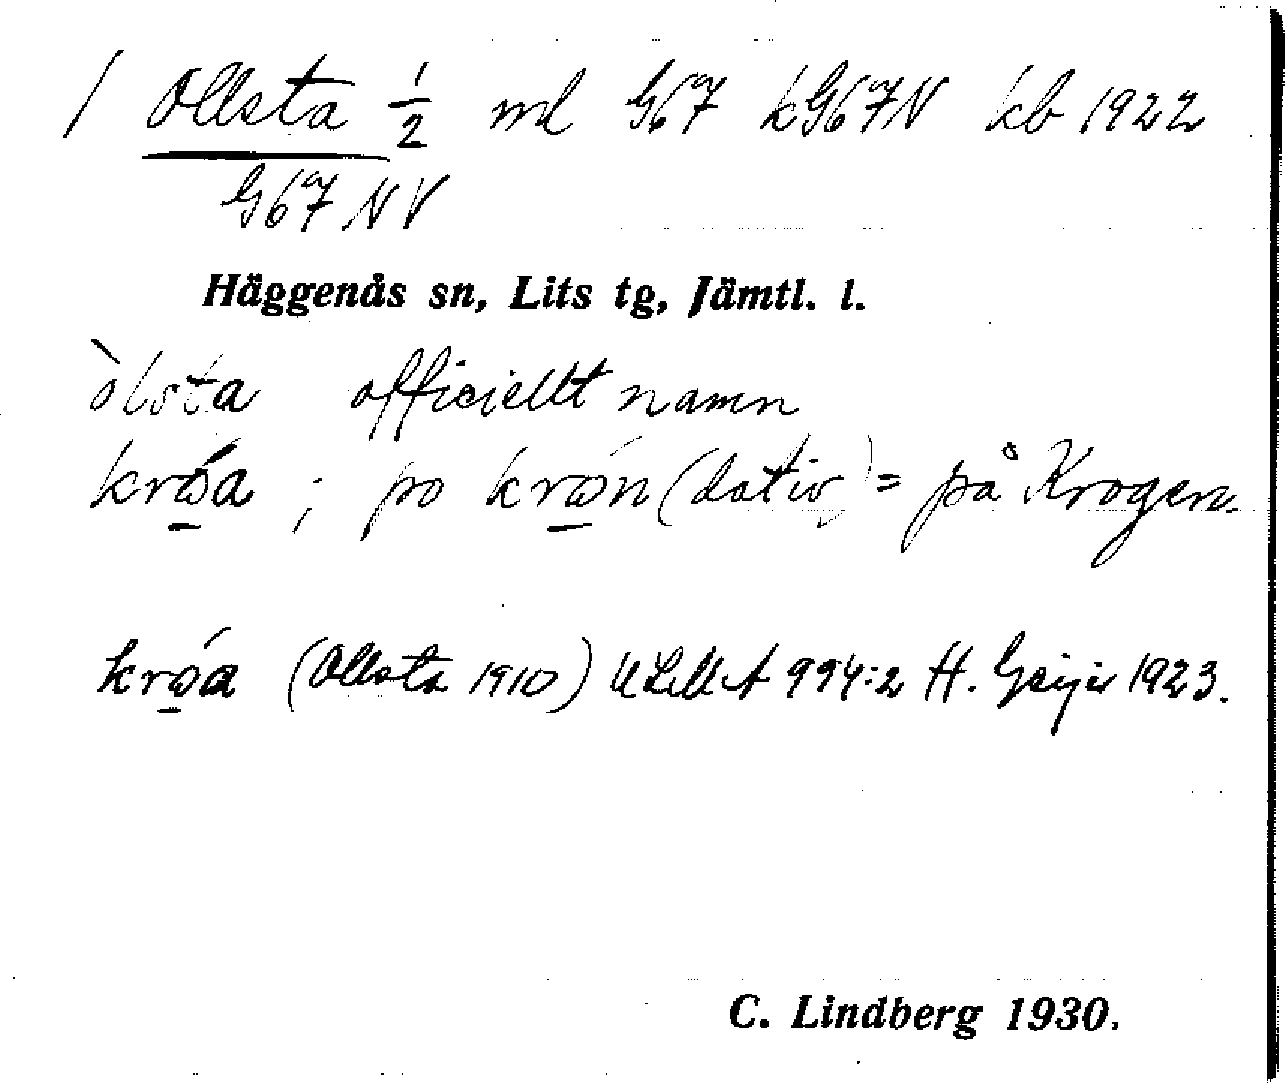 1 Ollsta ½ ml G67 kG67N kb 1922
G67 NV
Häggenås sn, Lits tg, Jämtl. l.
òlsta officiellt namn
krǫ́a ; po krǫ́n (dativ) = på Krogen.
krǫ́a (Ollsta 1910) ULMA 994:2 H. Geijer 1923.
C. Lindberg 1930.